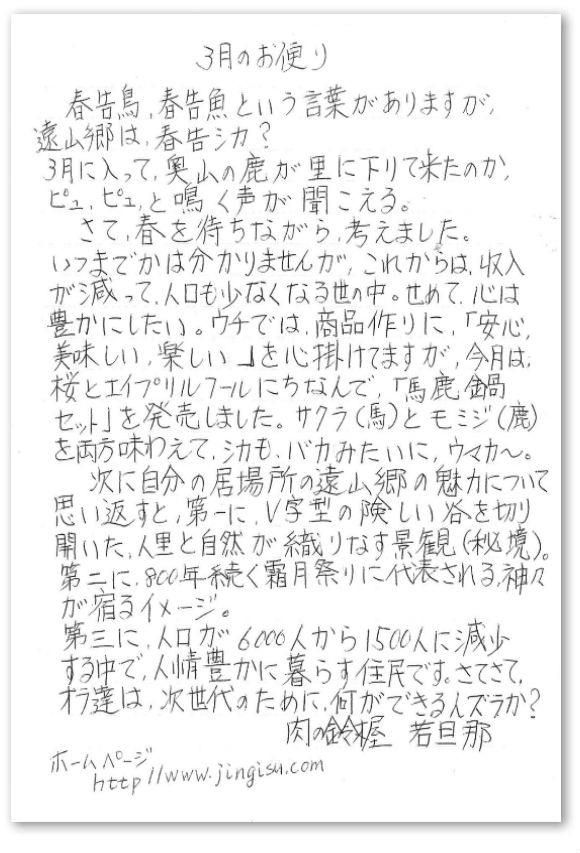 3月のお便り
春告鳥、春告魚という言葉がありますが、
遠山郷は、春告シカ?
3月に入って、奥山の鹿が里に下りて来たのか、
ピュ、ピュ、と鳴く声が聞こえる。
さて、春を待ちながら、考えました。
いつまでかは分かりませんが、これからは、収入
が減って、人口も少なくなる世の中。せめて、心は
豊かにしたい。ウチでは、商品作りに、「安心、
美味しい、楽しい」を心掛けてますが、今月は、
桜とエイプリルフールにちなんで、「馬鹿鍋
セット」を発売しました。サクラ(馬)とモミジ(鹿)
を両方味わえて、シカも、バカみたいに、ウマカ〜。
次に自分の居場所の遠山郷の魅力について
思い返すと、第一に、V字型の険しい谷を切り
開いた、人里と自然が織りなす景観(秘境)。
第二に、800年続く霜月祭りに代表される、神々
が宿るイメージ。
第三に、人口が6000人から1500人に減少
する中で、人情豊かに暮らす住民です。さてさて、
オラ達は、次世代のために、何ができるんズラか?
肉の鈴木屋 若旦那
ホームページ
http//www.jingisu.com